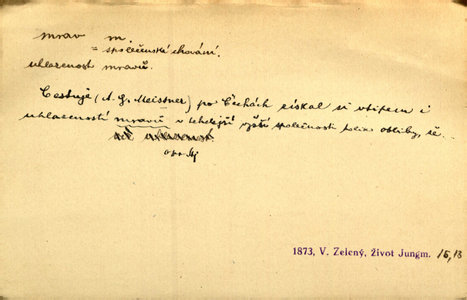 mrav m.
= společenské chování.
uhlazenost mravů.
Cestuje (A. G. Meissner) po Čechách získal si vtipem i
uhlazeností mravů v tehdejší vyšší společnosti tolik obliby, že..
opr. Mj
1873, V. Zelený, Život Jungm. 15,13